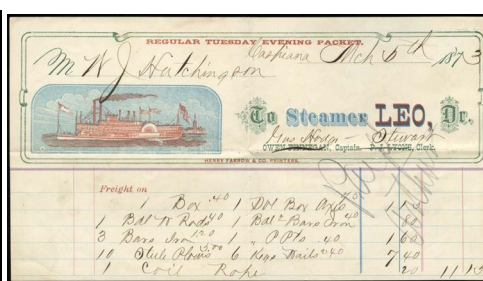 REGULAR TUESDAY EVENING PACKET.
Caspiana Mch 5th 1873
M W J Hutchingson
To Steamer LEO, Dr.
Stewart
OWEN FINNEGAN, Captain. P. J. LYONS, Clerk.
HENRY FARROW & CO. PRINTERS.
Freight on
1 Box 40 1 Dol Box Axes
1 Bal W Rods 40 1 Bal Bars Iron 40
3 Bars Iron 1.20 1 " P Pts 40 1 60
10 Steele Plows 5.00 6 Kegs Nails 2.40 7 40
1 Coil Rope 20